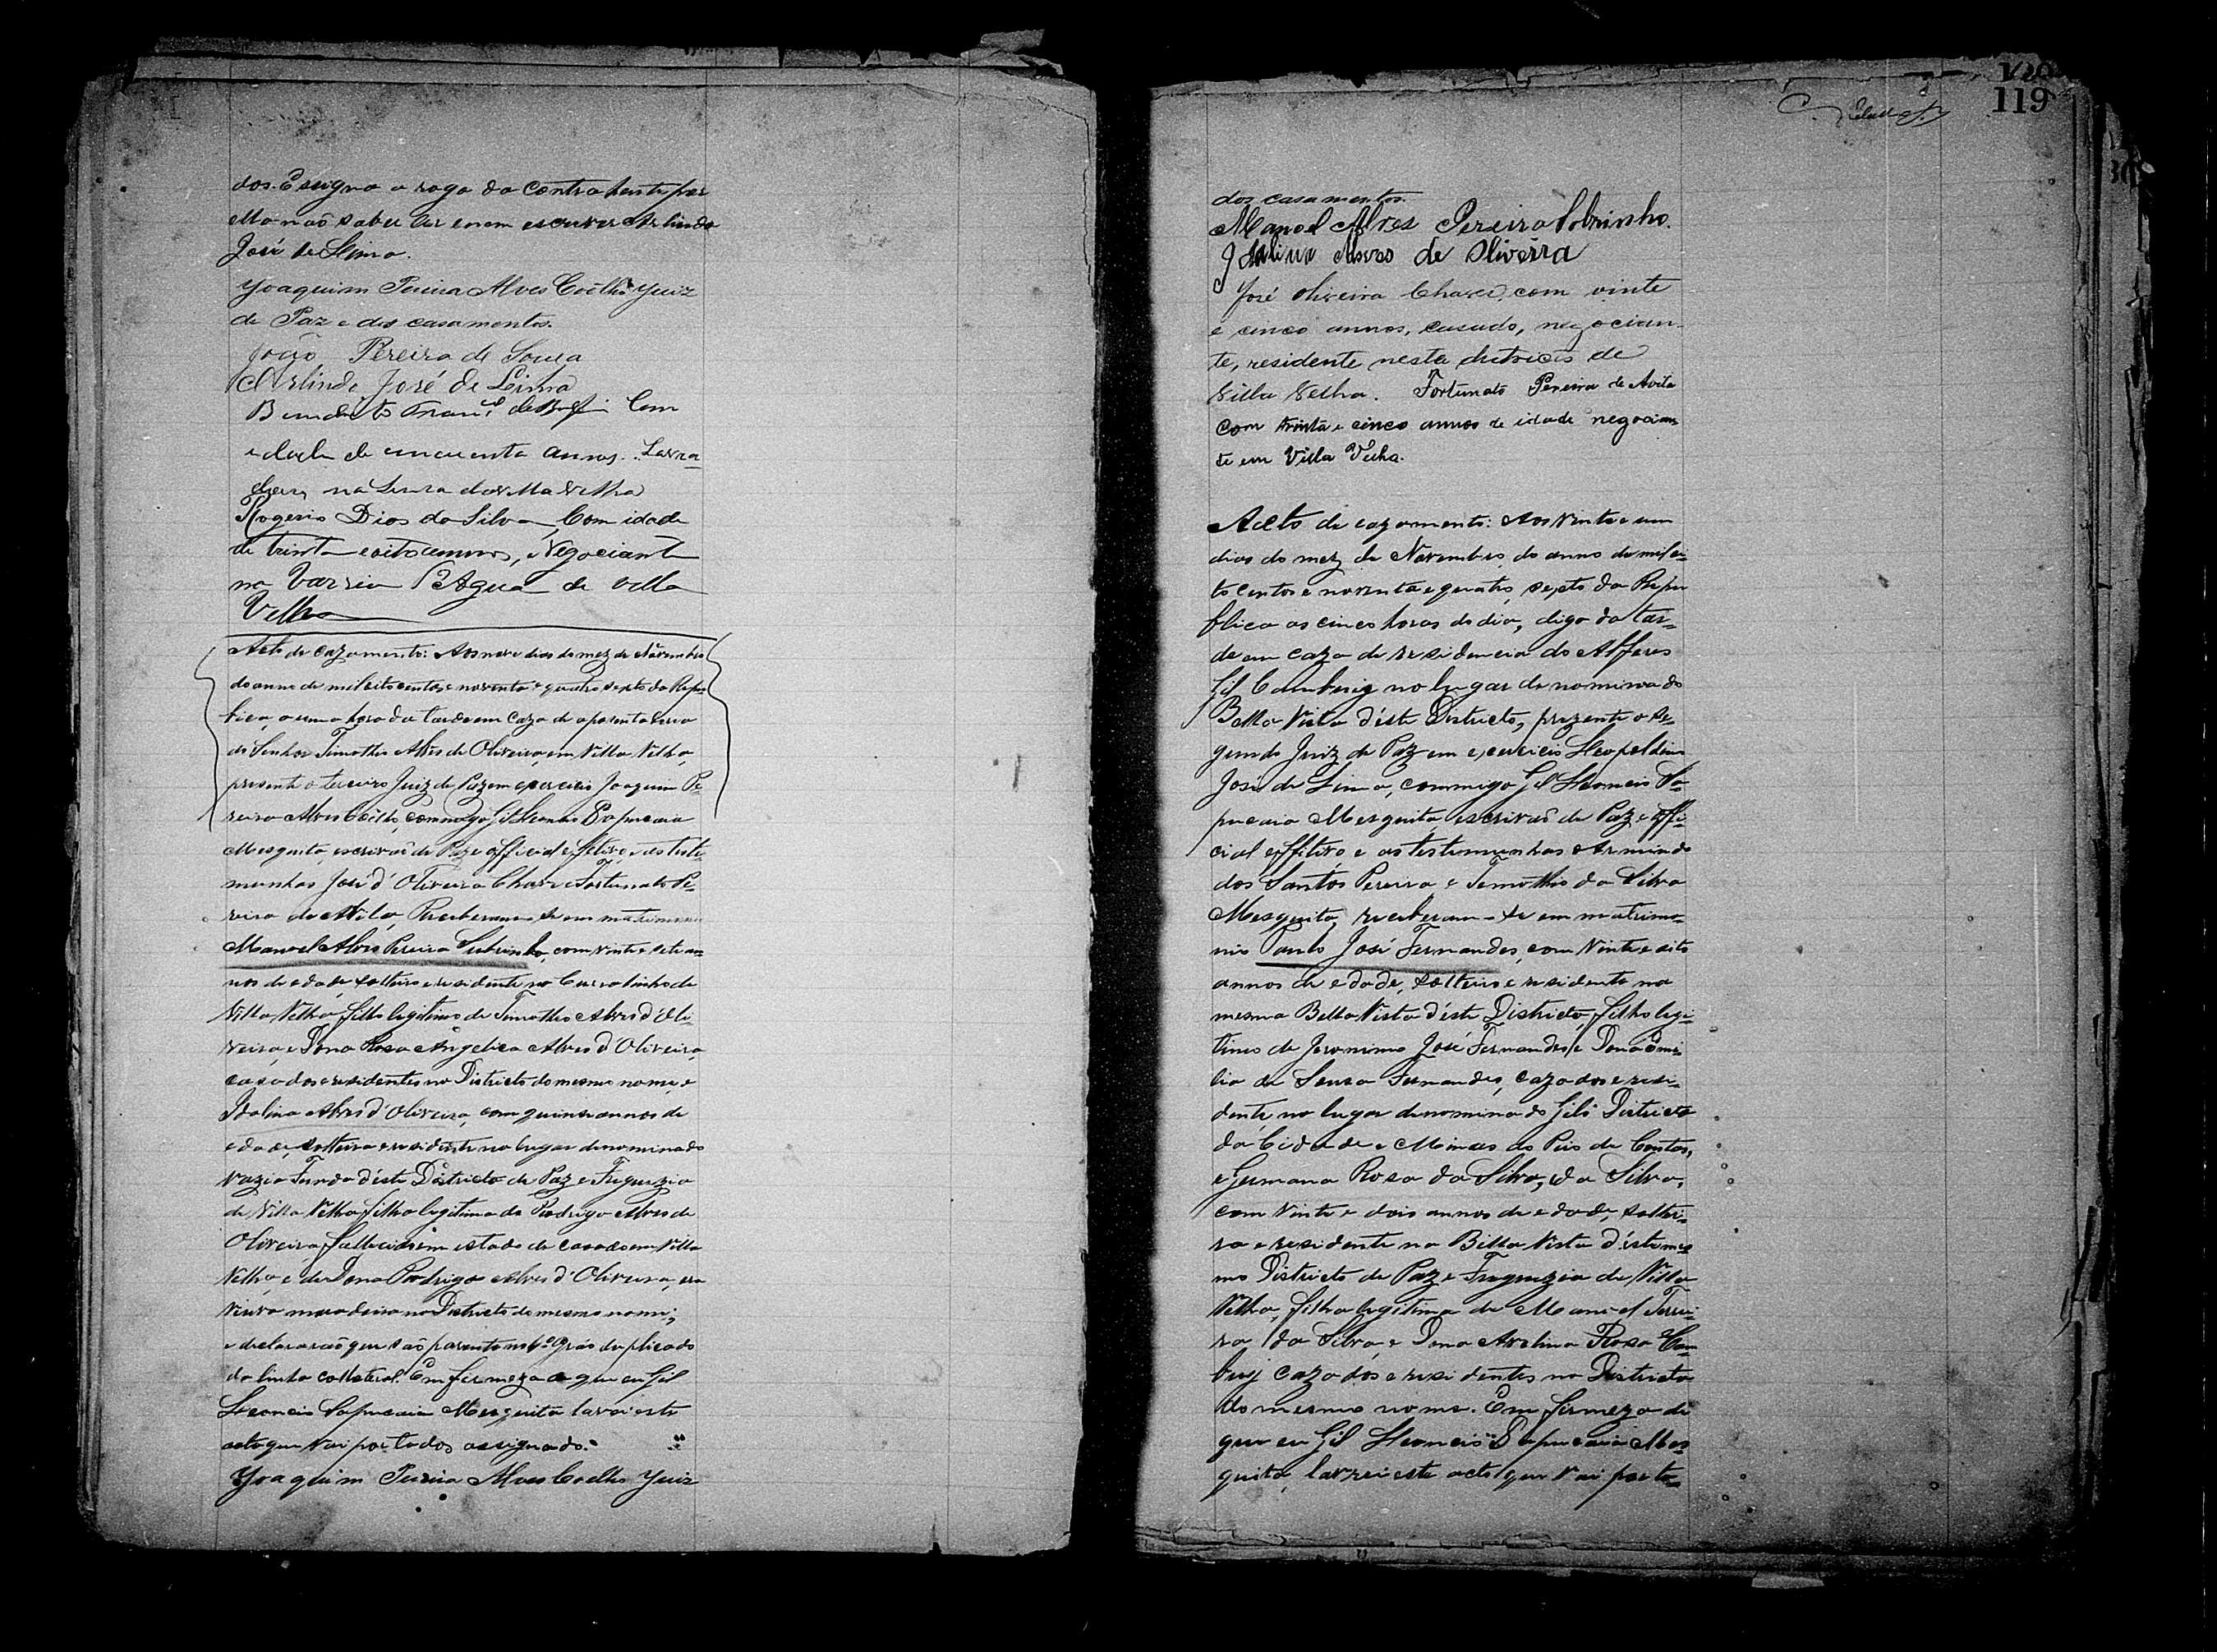 dos. E signa a rogo da contrahente por
ella não saber ler e nem escrever Arlindo
José de Lima.
Joaquim Pereira Alves Coelho Juiz
de Paz e dos casamentos.
João Pereira de Souza
Arlindo José de Lima
Benedicto Com
edade de cincuenta annos. Lavra-
dor, na
Rogerio Dias da Silva, Com idade
de trinta e oito annos, Negociante
na Varzia d'Agua de Villa
Velha
Acto de cazamento: Aos nove dias do mez de Novembro
do anno de mil oito centos e noventa e quatro sexto da Repu
blica, a uma hora da tarde em caza de aposentadoria
do Senhor Timotheo Alves de Oliveira, em Villa Velha,
presente o terceiro Juiz de Paz em exercicio Joaquim Pe-
reira Alves Coelho, commigo Gil Leoncio Sapucaia
Mesquita, escrivão de Paz e official effetivo, e as teste-
munhas José d'Oliveira Chaves e Fortunato Pe-
reira de Avila, Receberam-se em matrimonio
Manoel Alves Pereira Sobrinho, com vinte e sete an-
nos de edade, solteiro e residente no Curralinho de
Villa Velha, filho legitimo de Timotheo Alves d'Oli-
veira e Dona Rosa Angelica Alves d'Oliveira,
casados e residentes no Districto do mesmo nome, e
Idalina Alves d'Oliveira, com quinse annos de
edade, solteira e residente no lugar denominado
Vazia Funda d'este Districto de Paz e Freguezia
de Villa Velha filha legitima de Rodrigo Alves de
Oliveira, fallecido em estado de casado em Villa
Velha, e de Dona Rodriga Alves d'Oliveira, era
viuva moradeira no Districto do mesmo nome;
e declararão que são parentes no Gráo duplicado
da linha collateral. Em firmeza do que eu Gil
Leoncio Sapucaia Mesquita lavrei este
acto que vai por todos assignado.
Joaquim Pereira Alves Coelho Juiz
119
dos casamentos.
Manoel Alves Pereira Sobrinho.
Idalina Alves de Oliveira
José Oliveira Chaves, com vinte
e cinco annos, casado, negocian-
te, residente nesta districto de
Villa Velha. Fortunato Pereira de Avila
com trinta e cinco annos de idade negocian
te em Villa Velha.
Acto de cazamento: Aos vinte e um
dias do mez de Novembro do anno de mil oi-
to centos e noventa e quatro, sexto da Repu
blica as cinco horas do dia, digo da tar-
de em caza de residencia do Alferes
Gil no lugar denominado
Bella Vista d'este Districto, prezente o se-
gundo Juiz de Paz em exercicio Leopoldino
José de Lima, commigo Gil Leoncio Sa-
pucaia Mesquita, escrivão de Paz e offi-
cial effetivo e as testemunhas Armindo
dos Santos Pereira, e Temotheo da Silva
Mesquita, receberam-se em matrimo-
nio Paulo José Fernandes, com vinte e oito
annos de edade, solteiro e residente na
mesma Bella Vista d'este Districto, filho legi-
timo de Jeronimo José Fernandes, e Dona Emi
lia de Souza Fernandes, cazados e resi-
dente, no lugar denominado Giló Districto
da Cidade e Minas do Rio de Contas,
e Germana Rosa da Silva, da Silva,
com vinte e dois annos de edade, soltei-
ra e residente na Bella Vista d'este mes
mo Districto de Paz e Freguezia de Villa
Velha, filha legitima de Manoel Ferrei-
ra da Silva, e Dona Avelina Rosa Cam
buy cazados e residentes no Districto
do mesmo nome. Em firmeza do
que eu Gil Leoncio Sapucaia Mes-
quita, lavrei este acto que vai por to-